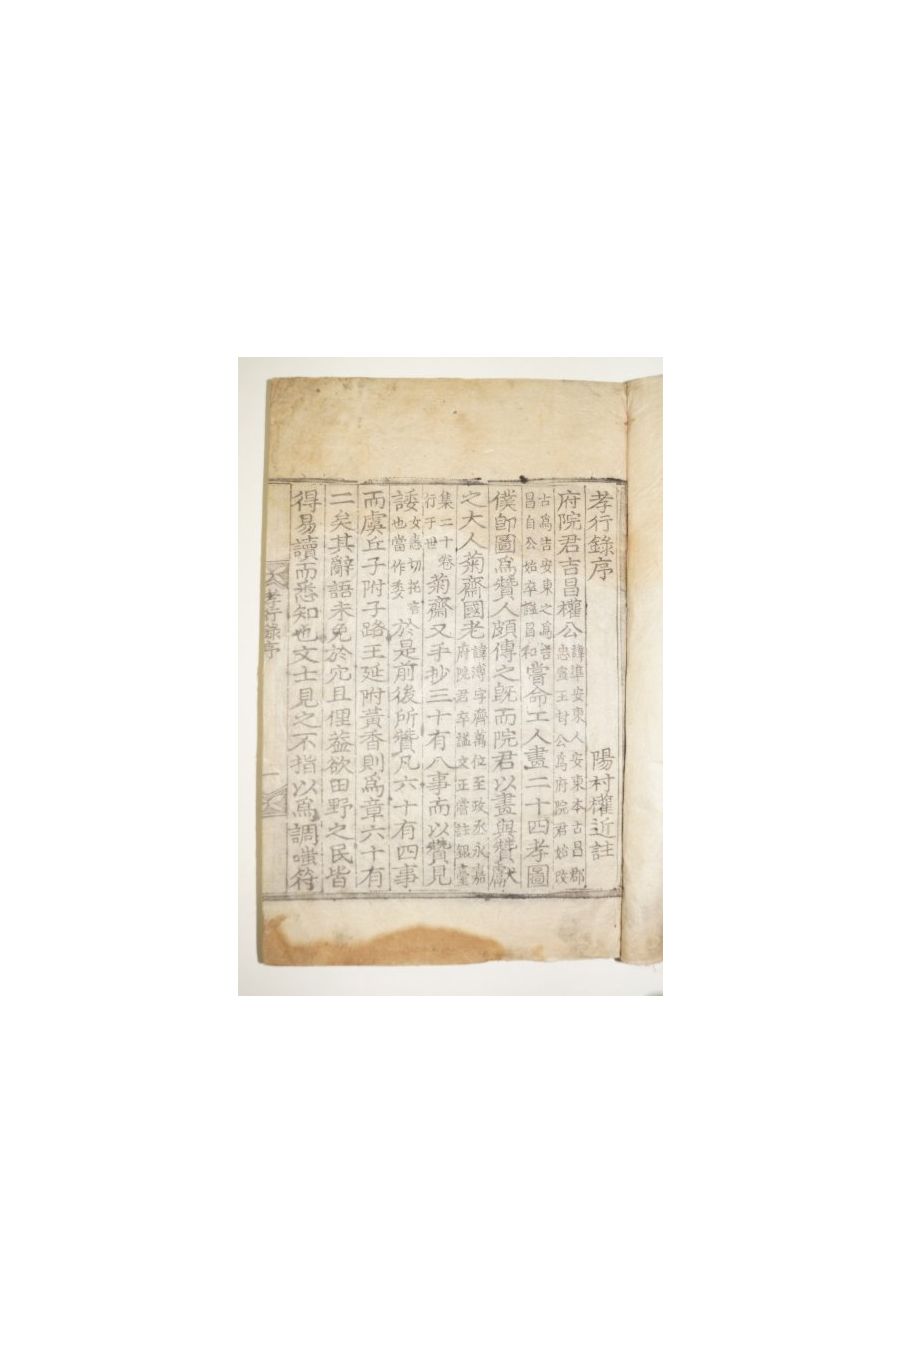 孝行錄序　陽村權近註
府院君吉昌權公諱準安東人安東本古昌郡
忠肅王封公爲府院君始改
古爲吉安東之爲吉
昌自公始卒諡昌和嘗命工人畫二十四孝圖
僕卽圖爲贊人頗傳之旣而院君以畫與贊獻
之大人菊齋國老諱溥字齊萬位至政丞永嘉
府院君卒諡文正嘗註銀臺
集二十卷
行于世菊齋又手抄三十有八事而以贊見
諉女恚切託言
也當作委於是前後所贊凡六十有四事
而虞丘子附子路王延附黃香則爲章六十有
二矣其辭語未免於冗且俚蓋欲田野之民皆
得易讀而悉知也文士見之不指以爲調嗤符
孝行錄序　一